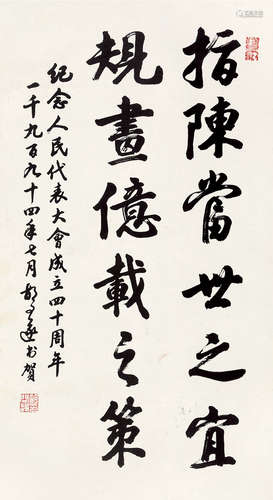 指陳當世之宜
規畫億載之策
紀念人民代表大會成立四十周年
一千九百九十四年七月 书贺